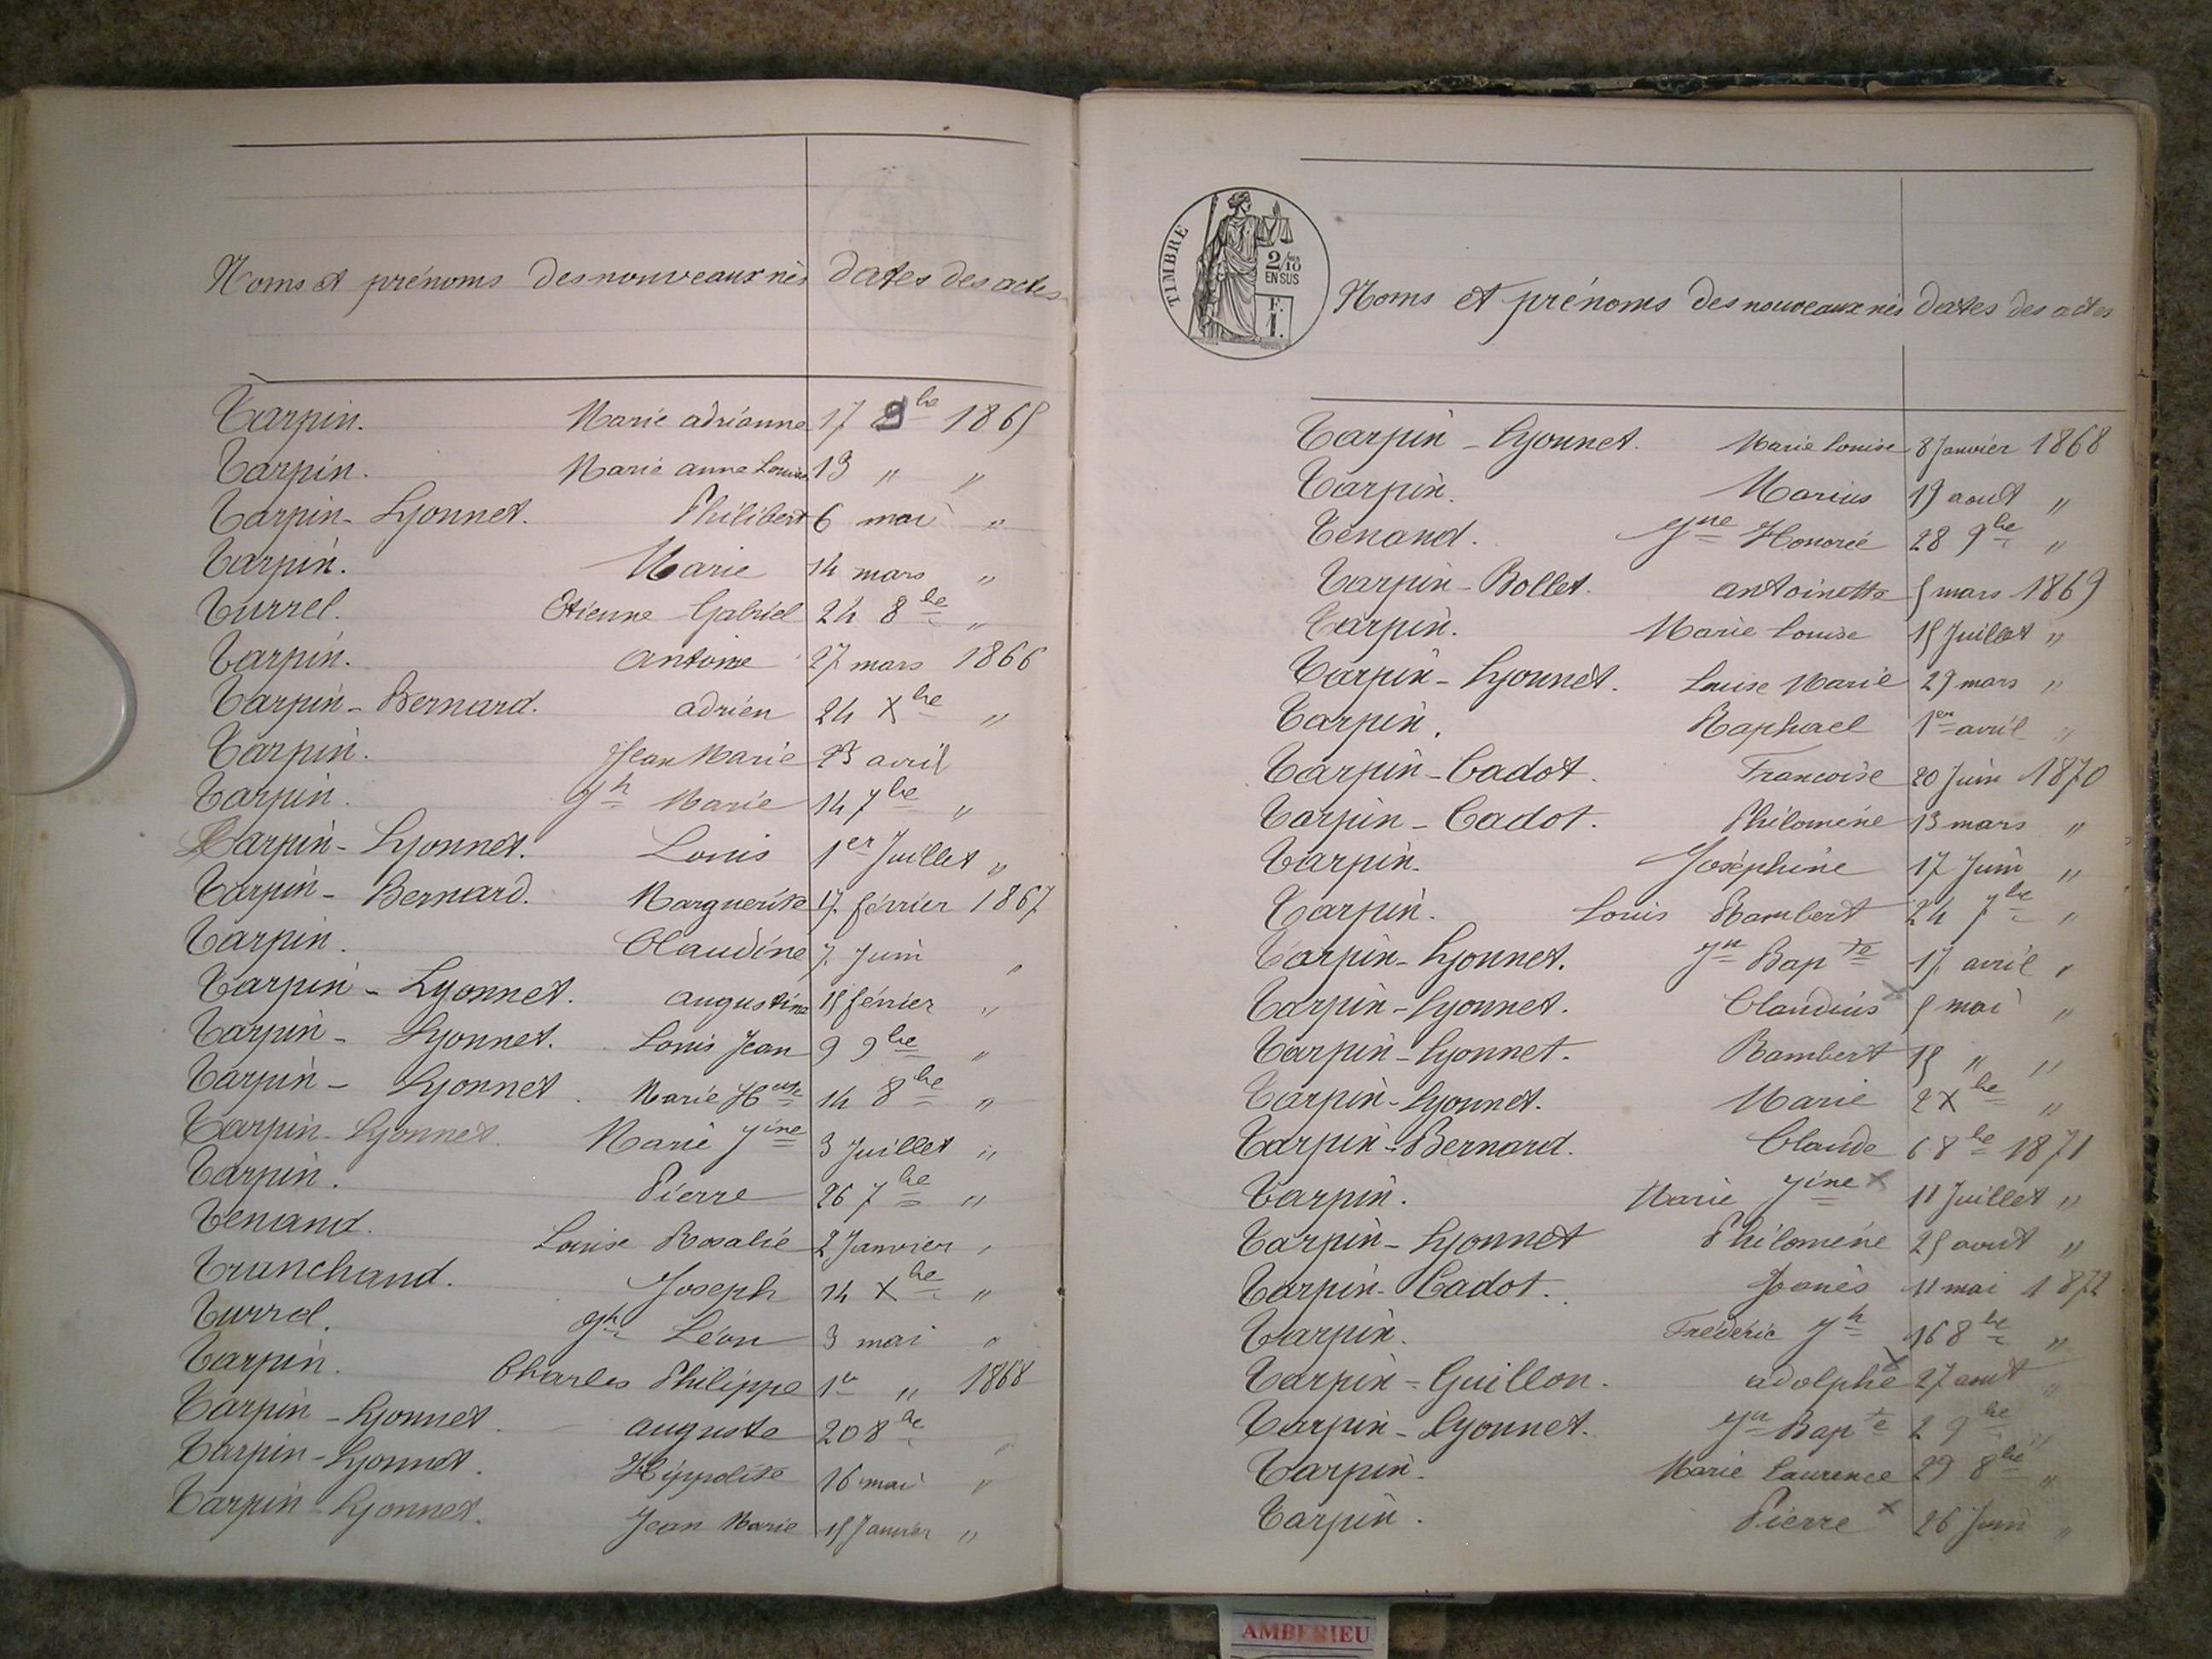 Noms et prénoms des nouveaux nés dates des actes
Tarpin. Marie adrianne 17 9bre 1865
Tarpin. Marie anne Louise 13 " "
Tarpin-Lyonnet. Philibert 6 mai "
Tarpin. Marie 14 mars "
Turrel. Etienne Gabriel 24 8bre "
Tarpin. antoine 27 mars 1866
Tarpin-Bernard. adrien 24 Xbre "
Tarpin. Jean Marie 23 avril
Tarpin. Jh Marie 14 7bre "
Tarpin-Lyonnet. Louis 1er Juillet "
Tarpin-Bernard. Marguerite 17 février 1867
Tarpin. Claudine 7 Juin "
Tarpin-Lyonnet. augustine 15 février "
Tarpin-Lyonnet. Louis Jean 9 9bre "
Tarpin-Lyonnet. Marie 14 8bre "
Tarpin-Lyonnet. Marie Jine 3 Juillet "
Tarpin. Pierre 26 7bre "
Tenand. Louise Rosalie 2 Janvier "
Trunchand. Joseph 14 Xbre "
Turrel. Jh Léon 3 mai "
Tarpin. Charles Philippe 1er " 1868
Tarpin-Lyonnet. auguste 20 8bre "
Tarpin-Lyonnet. Hippolite 16 mai "
Tarpin-Lyonnet. Jean Marie 15 Janvier "
TIMBRE
2/10
EN SUS
F.
1.
Noms et prénoms des nouveaux nés dates des actes
Tarpin-Lyonnet. Marie Louise 8 Janvier 1868
Tarpin. Marius 19 aout "
Tenand. Jne Honorée 28 9bre "
Tarpin-Bollet. antoinette 5 mars 1869
Tarpin. Marie Louise 15 Juillet "
Tarpin-Lyonnet. Louise Marie 29 mars "
Tarpin. Raphael 1er avril "
Tarpin-Cadot. Francoise 20 Juin 1870
Tarpin-Cadot. Philomène 13 mars "
Tarpin. Joséphine 17 Juin "
Tarpin. Louis Rambert 24 7bre "
Tarpin-Lyonnet. Jn Bapte 17 avril "
Tarpin-Lyonnet. Claudius x 5 mai "
Tarpin-Lyonnet. Rambert 15 " "
Tarpin-Lyonnet. Marie 2 Xbre "
Tarpin-Bernard. Claude 6 8bre 1871
Tarpin. Marie Jine x 11 Juillet "
Tarpin-Lyonnet Philomène 25 aout "
Tarpin-Cadot. Joanès 11 mai 1872
Tarpin. Frédéric Jh 16 8bre "
Tarpin-Guillon. adolphe x 27 aout "
Tarpin-Lyonnet. Jn Bapte 2 9bre "
Tarpin. Marie Laurence 29 8bre "
Tarpin. Pierre x 26 Juin "
AMBERIEU